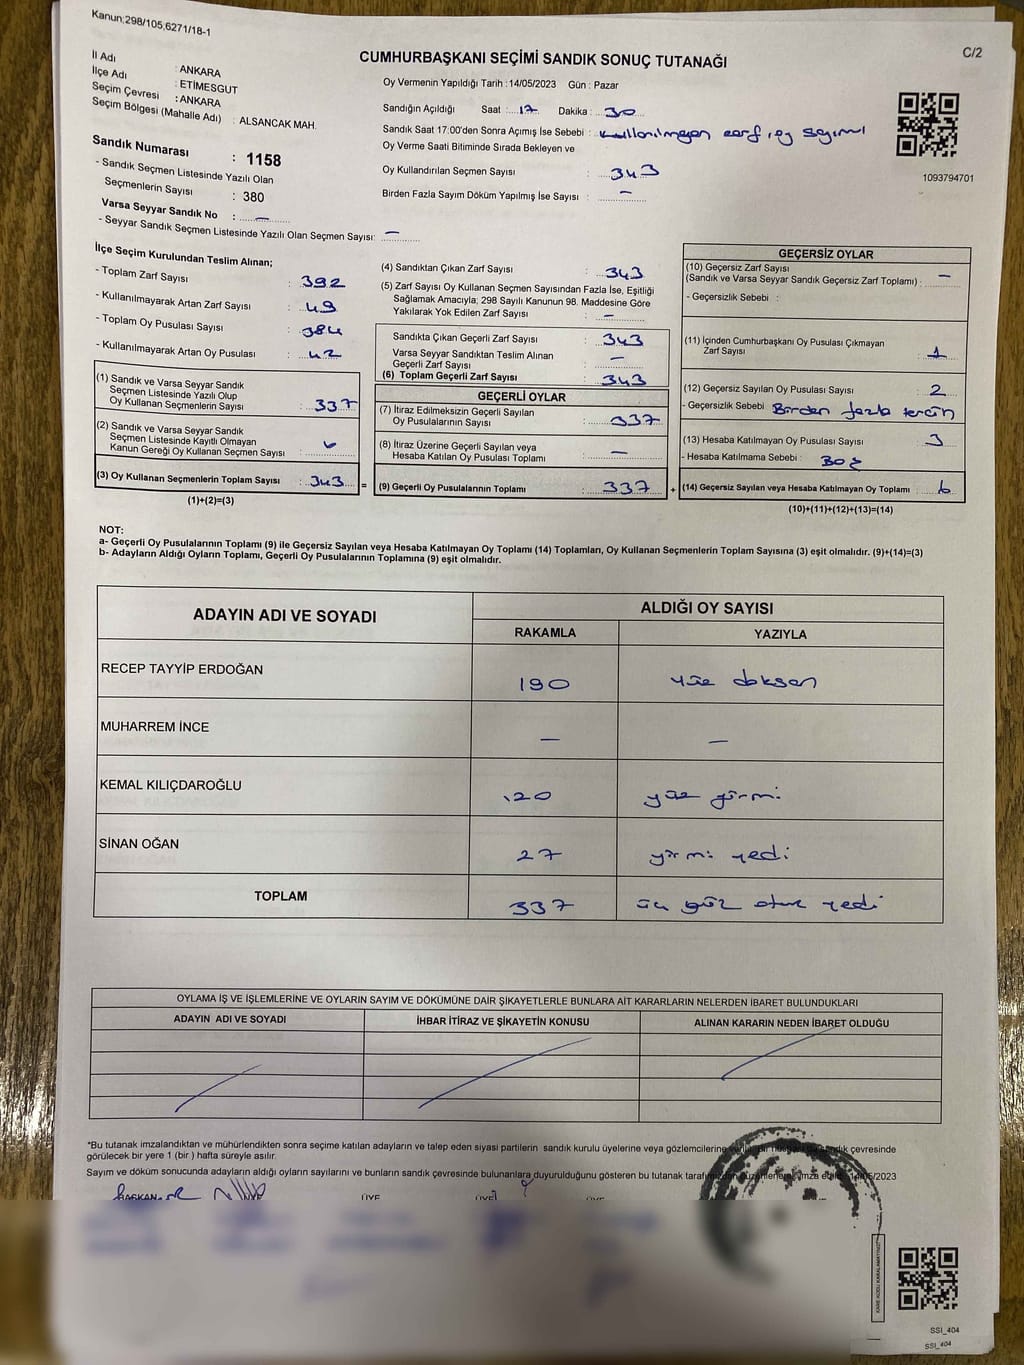 Kanun;298/105,6271/18-1
C/2
CUMHURBAŞKANI SEÇİMİ SANDIK SONUÇ TUTANAĞI
İl Adı : ANKARA
İlçe Adı : ETİMESGUT
Seçim Çevresi : ANKARA
Seçim Bölgesi (Mahalle Adı) : ALSANCAK MAH.
Sandık Numarası : 1158
- Sandık Seçmen Listesinde Yazılı Olan
Seçmenlerin Sayısı : 380
Varsa Seyyar Sandık No : —
- Seyyar Sandık Seçmen Listesinde Yazılı Olan Seçmen Sayısı: —
Oy Vermenin Yapıldığı Tarih : 14/05/2023 Gün : Pazar
Sandığın Açıldığı Saat : 17 Dakika : 30
Sandık Saat 17:00'den Sonra Açımış İse Sebebi : kullanılmayan zarf, oy sayımı
Oy Verme Saati Bitiminde Sırada Bekleyen ve
Oy Kullandırılan Seçmen Sayısı : 343
Birden Fazla Sayım Döküm Yapılmış İse Sayısı : —
1093794701
İlçe Seçim Kurulundan Teslim Alınan;
- Toplam Zarf Sayısı : 392
- Kullanılmayarak Artan Zarf Sayısı : 49
- Toplam Oy Pusulası Sayısı : 384
- Kullanılmayarak Artan Oy Pusulası : 42
(1) Sandık ve Varsa Seyyar Sandık
Seçmen Listesinde Yazılı Olup
Oy Kullanan Seçmenlerin Sayısı : 337
(2) Sandık ve Varsa Seyyar Sandık
Seçmen Listesinde Kayıtlı Olmayan
Kanun Gereği Oy Kullanan Seçmen Sayısı : 6
(3) Oy Kullanan Seçmenlerin Toplam Sayısı : 343 =
(1)+(2)=(3)
(4) Sandıktan Çıkan Zarf Sayısı : 343
(5) Zarf Sayısı Oy Kullanan Seçmen Sayısından Fazla İse, Eşitliği
Sağlamak Amacıyla; 298 Sayılı Kanunun 98. Maddesine Göre
Yakılarak Yok Edilen Zarf Sayısı : —
Sandıkta Çıkan Geçerli Zarf Sayısı : 343
Varsa Seyyar Sandıktan Teslim Alınan
Geçerli Zarf Sayısı : —
(6) Toplam Geçerli Zarf Sayısı : 343
GEÇERLİ OYLAR
(7) İtiraz Edilmeksizin Geçerli Sayılan
Oy Pusulalarının Sayısı : 337
(8) İtiraz Üzerine Geçerli Sayılan veya
Hesaba Katılan Oy Pusulası Toplamı : —
(9) Geçerli Oy Pusulalarının Toplamı : 337 +
GEÇERSİZ OYLAR
(10) Geçersiz Zarf Sayısı
(Sandık ve Varsa Seyyar Sandık Geçersiz Zarf Toplamı) : —
- Geçersizlik Sebebi :
(11) İçinden Cumhurbaşkanı Oy Pusulası Çıkmayan
Zarf Sayısı : 1
(12) Geçersiz Sayılan Oy Pusulası Sayısı : 2
- Geçersizlik Sebebi Birden fazla tercih
(13) Hesaba Katılmayan Oy Pusulası Sayısı : 3
- Hesaba Katılmama Sebebi : Boş
(14) Geçersiz Sayılan veya Hesaba Katılmayan Oy Toplamı : 6
(10)+(11)+(12)+(13)=(14)
NOT:
a- Geçerli Oy Pusulalarının Toplamı (9) ile Geçersiz Sayılan veya Hesaba Katılmayan Oy Toplamı (14) Toplamları, Oy Kullanan Seçmenlerin Toplam Sayısına (3) eşit olmalıdır. (9)+(14)=(3)
b- Adayların Aldığı Oyların Toplamı, Geçerli Oy Pusulalarının Toplamına (9) eşit olmalıdır.
ADAYIN ADI VE SOYADI ALDIĞI OY SAYISI
RAKAMLA YAZIYLA
RECEP TAYYİP ERDOĞAN 190 yüz doksan
MUHARREM İNCE — —
KEMAL KILIÇDAROĞLU 120 yüz yirmi
SİNAN OĞAN 27 yirmi yedi
TOPLAM 337 üç yüz otuz yedi
OYLAMA İŞ VE İŞLEMLERİNE VE OYLARIN SAYIM VE DÖKÜMÜNE DAİR ŞİKAYETLERLE BUNLARA AİT KARARLARIN NELERDEN İBARET BULUNDUKLARI
ADAYIN ADI VE SOYADI İHBAR İTİRAZ VE ŞİKAYETİN KONUSU ALINAN KARARIN NEDEN İBARET OLDUĞU
*Bu tutanak imzalandıktan ve mühürlendikten sonra seçime katılan adayların ve talep eden siyasi partilerin sandık kurulu üyelerine veya gözlemcilerine çevresinde
görülecek bir yere 1 (bir ) hafta süreyle asılır.
Sayım ve döküm sonucunda adayların aldığı oyların sayılarını ve bunların sandık çevresinde bulunanlara duyurulduğunu gösteren bu tutanak imza 14/05/2023
BAŞKAN ÜYE ÜYE ÜYE ÜYE
SSI_404
SSI_404